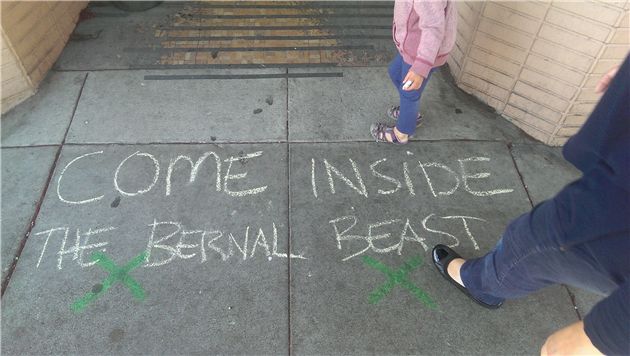 COME INSIDE
THE BERNAL BEAST